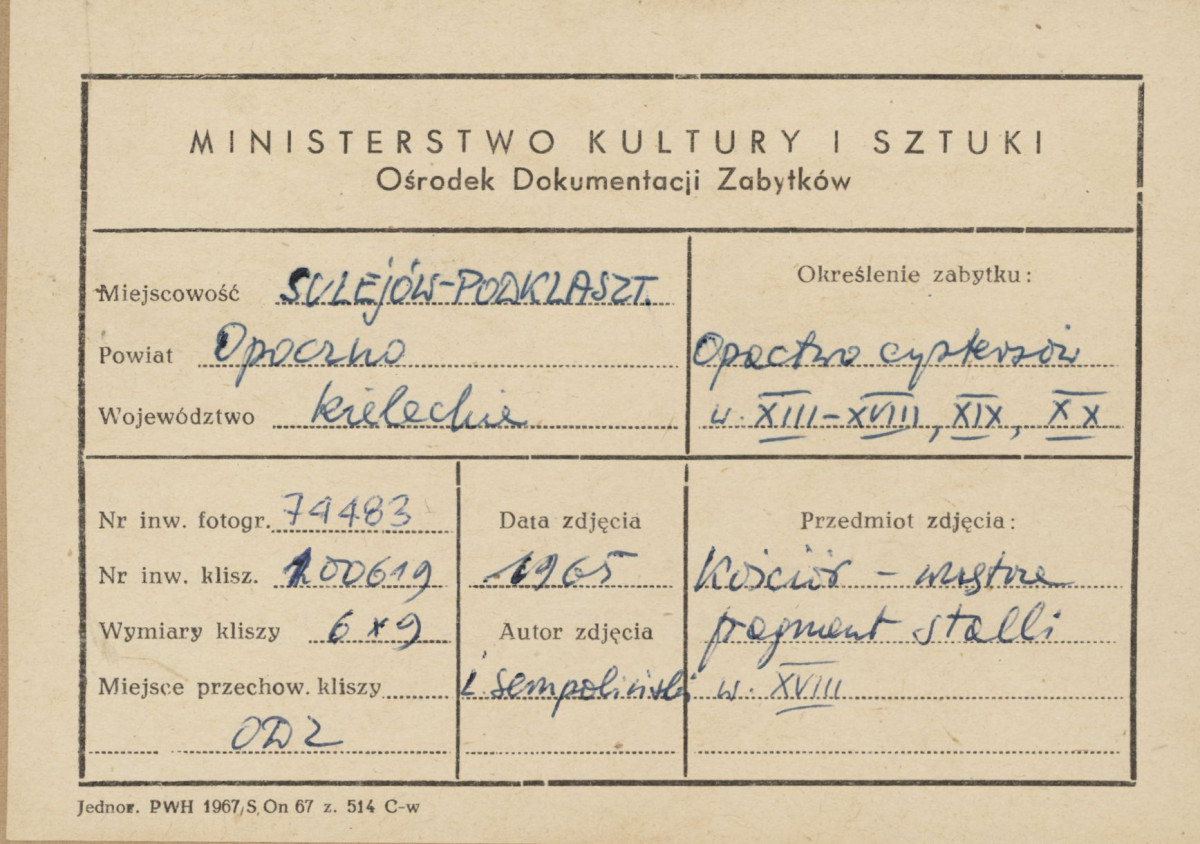 MINISTERSTWO KULTURY I SZTUKI
Ośrodek Dokumentacji Zabytków
Miejscowość SULEJÓW-PODKLASZT.
Powiat Opoczno
Województwo kieleckie
Określenie zabytku:
Opactwo cystersów
w. XIII-XVIII, XIX, XX
Nr inw. fotogr. 74483
Nr inw. klisz. 100619
Wymiary kliszy 6x9
Miejsce przechow. kliszy
ODZ
Data zdjęcia
1965
Autor zdjęcia
Sempoliński
Przedmiot zdjęcia:
Kościół - wnętrze
fragment stalli
w. XVIII
Jednor. PWH 1967/S. On 67 z. 514 C-w